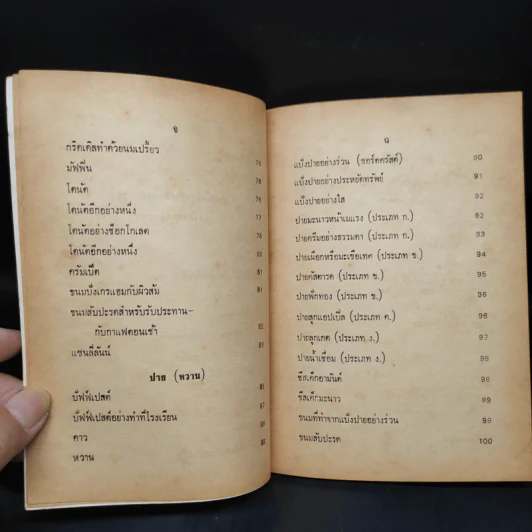 จ
กริดเดิลทำด้วยนมเปรี้ยว 75
มัฟฟิ่น 76
โดนัต 76
โดนัตอีกอย่างหนึ่ง 77
โดนัตอย่างช็อกโกเลต 78
โดนัตอีกอย่างหนึ่ง 80
ครัมเบ็ต 81
ขนมปังเกรแฮมกับผิวส้ม 81
ขนมสับปะรดสำหรับรับประทาน-
กับกาแฟตอนเช้า
แซนลี่ลันน์
ปาส (หวาน)
บัฟฟ์เปสต์
บัฟฟ์เปสต์อย่างทำที่โรงเรียน
คาว
หวาน
ฉ
แป้งปายอย่างร่วน (ชอร์ตครัสต์) 90
แป้งปายอย่างประหยัดทรัพย์ 91
แป้งปายอย่างใส 92
ปายมะนาวหน้าเมแรง (ประเภท ก.) 92
ปายครีมอย่างธรรมดา (ประเภท ก.) 93
ปายเผือกหรือมะเขือเทศ (ประเภท ข.) 94
ปายคัสตารด (ประเภท ข.) 95
ปายฟักทอง (ประเภท ข.) 96
ปายลูกแอปเปิ้ล (ประเภท ค.) 96
ปายลูกเกต (ประเภท ง.) 97
ปายน้ำเชื่อม (ประเภท ง.) 98
ชีสเค้กอามันต์ 98
ชีสเค้กมะนาว 99
ขนมที่ทำจากแป้งปายอย่างร่วน 99
ขนมสับปะรด 100